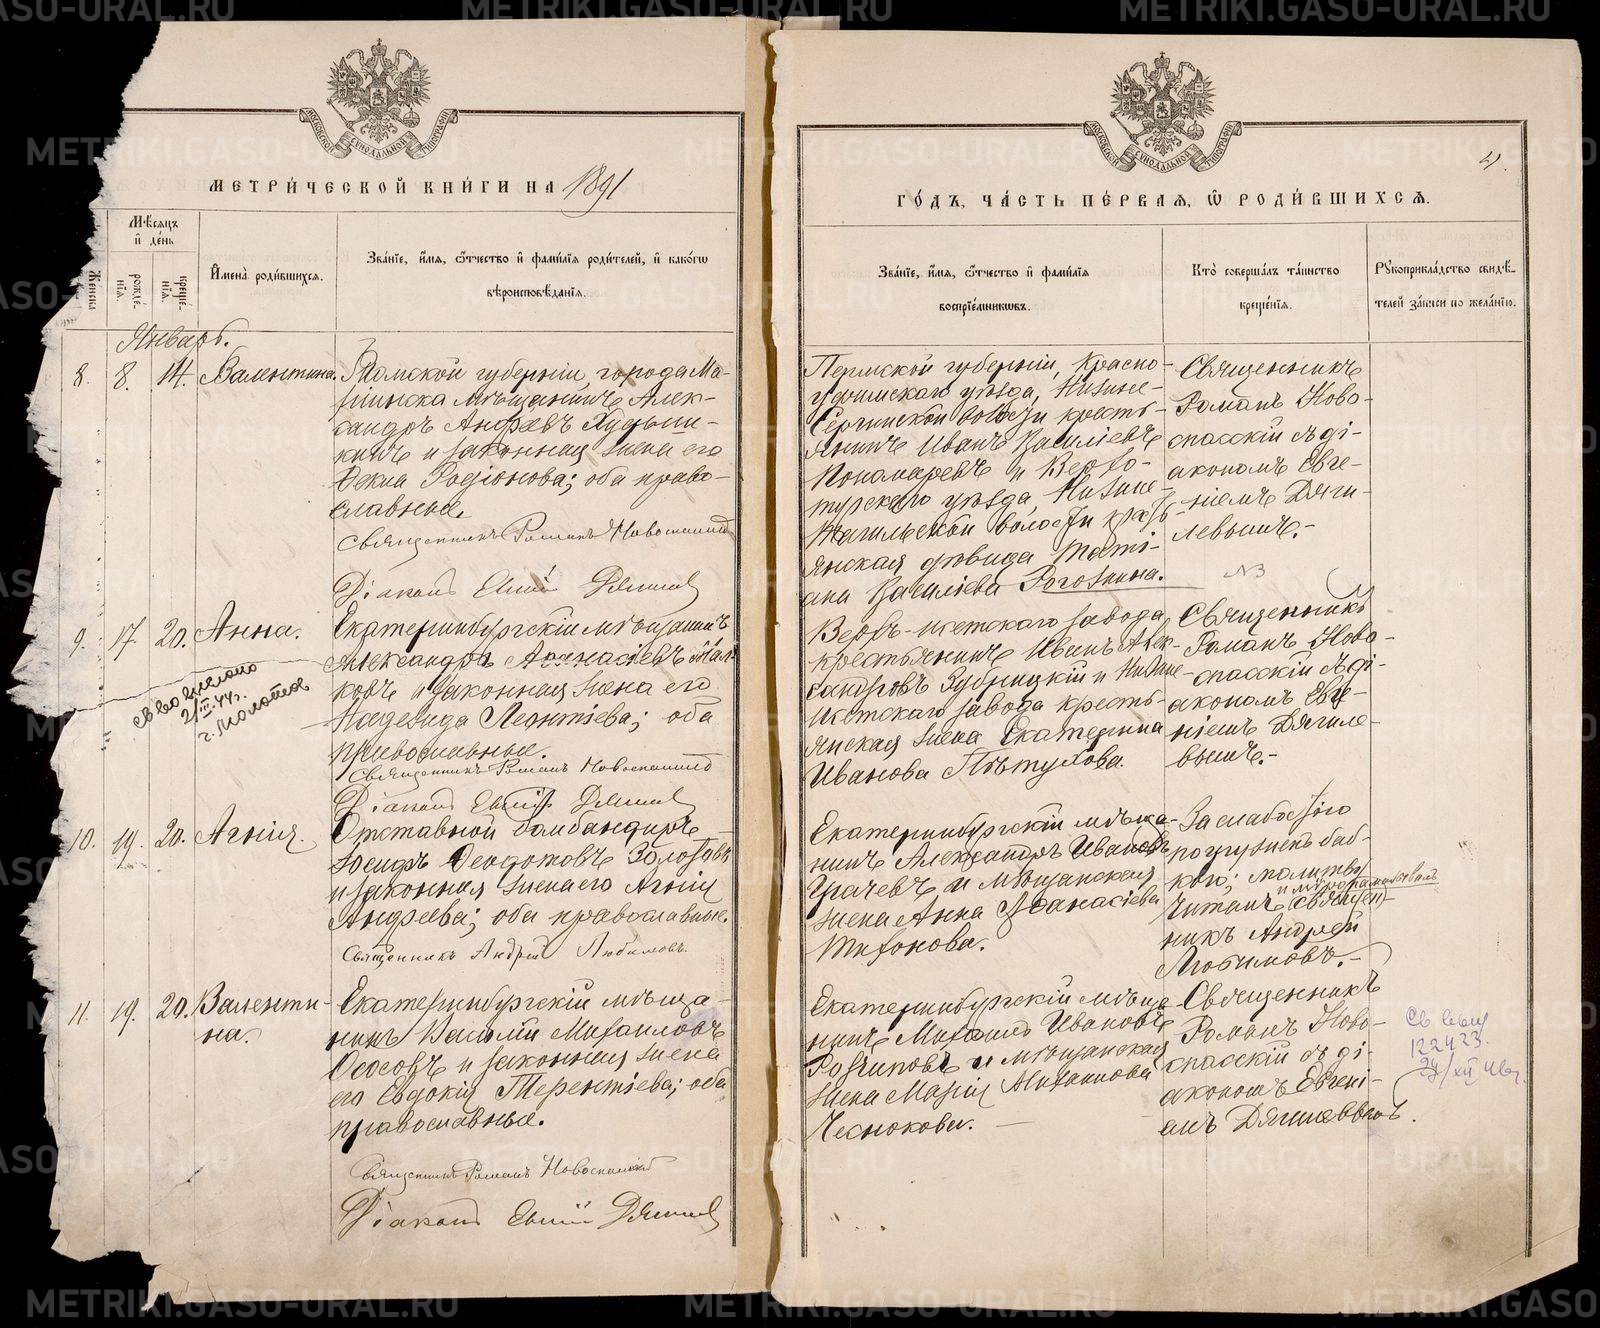 МОСКОВСКОЙ СѴНОДАЛЬНОЙ ТИПОГРАФІИ
МЕТРИ́ЧЕСКОЙ КНИ́ГИ НА 1891
Мѣсяцъ и де́нь
Же́нска
рожде́нїѧ.
креще́нїѧ.
И҆мена̀ роди́вшихсѧ.
Зва́нїе, и҆́мѧ, ѻ҆́тчество и҆ фами́лїѧ роди́телей, и҆ како́гѡ
вѣроисповѣ́данїѧ.
Январь.
8. 8. 14. Валентина.
Томской губерніи, города Ма-
ріинска мѣщанинъ Алек-
сандръ Андреевъ
и законная жена его
Родіонова; оба право-
славные.
Священникъ Романъ Новоспасскій
Діаконъ Евгеній Дягилевъ
9. 17. 20. Анна.
Екатеринбургскій мѣщанинъ
Александръ Аѳанасіевъ
и законная жена его
Надежда Леонтіева; оба
православные.
Священникъ Романъ Новоспасскій
Діаконъ Евгеній Дягилевъ
2/III.44г.
г. Молотов
10. 19. 20. Агнія.
Отставной бомбандиръ
Іосифъ Ѳеодотовъ Золотовъ
и законная жена его Агнія
Андреева; оба православные.
Священникъ Андрей Любимовъ.
11. 19. 20. Валенти-
на.
Екатеринбургскій мѣща-
нинъ Василій Михаиловъ
и законная жена
его Евдокія Терентіева; оба
православные.
Священникъ Романъ Новоспасскій
Діаконъ Евгеній Дягилевъ
МОСКОВСКОЙ СѴНОДАЛЬНОЙ ТИПОГРАФІИ
4.
ГО́ДЪ, ЧА́СТЬ ПЕ́РВАѦ, Ѽ РОДИ́ВШИХСѦ.
Зва́нїе, и҆́мѧ, ѻ҆́тчество и҆ фами́лїѧ
воспрїе́мникѡвъ.
Кто̀ соверша́лъ та́инство
креще́нїѧ.
Рꙋкоприкла́дство свидѣ́-
телей за́писи по жела́нїю.
Пермской губерніи, Красно-
уфимскаго уѣзда, Нижне-
Сергинской волости кресть-
янинъ Иванъ Василіевъ
Пономаревъ и Верхо-
турскаго уѣзда, Нижне-
Тагильской волости кресть-
янская дѣвица Таті-
ана Василіева Рогожина.
Священникъ
Романъ Ново-
спасскій съ ді-
акономъ Евге-
ніемъ Дяги-
левымъ.-
Верхъ-Исетскаго завода
крестьянинъ Иванъ Алек-
сандровъ Зубрицкій и Нижне-
Исетскаго завода кресть-
янская жена Екатерина
Иванова Пѣтухова.
Священникъ
Романъ Ново-
спасскій съ ді-
акономъ Евге-
ніемъ Дягиле-
вымъ.-
Екатеринбургскій мѣща-
нинъ Александръ Ивановъ
Грачевъ и мѣщанская
жена Анна Аѳанасіева
Тихонова.
За слабостію
погруженъ баб-
кою; молитвы
и мѵропомазывалъ
читалъ священ-
никъ Андрей
Любимовъ.-
Екатеринбургскій мѣща-
нинъ Михаилъ Ивановъ
и мѣщанская
жена Марія Михаилова
Чеснокова.
Священникъ
Романъ Ново-
спасскій съ ді-
акономъ Евгені-
емъ Дягилевымъ.
122423.
METRIKI.GASO-URAL.RU